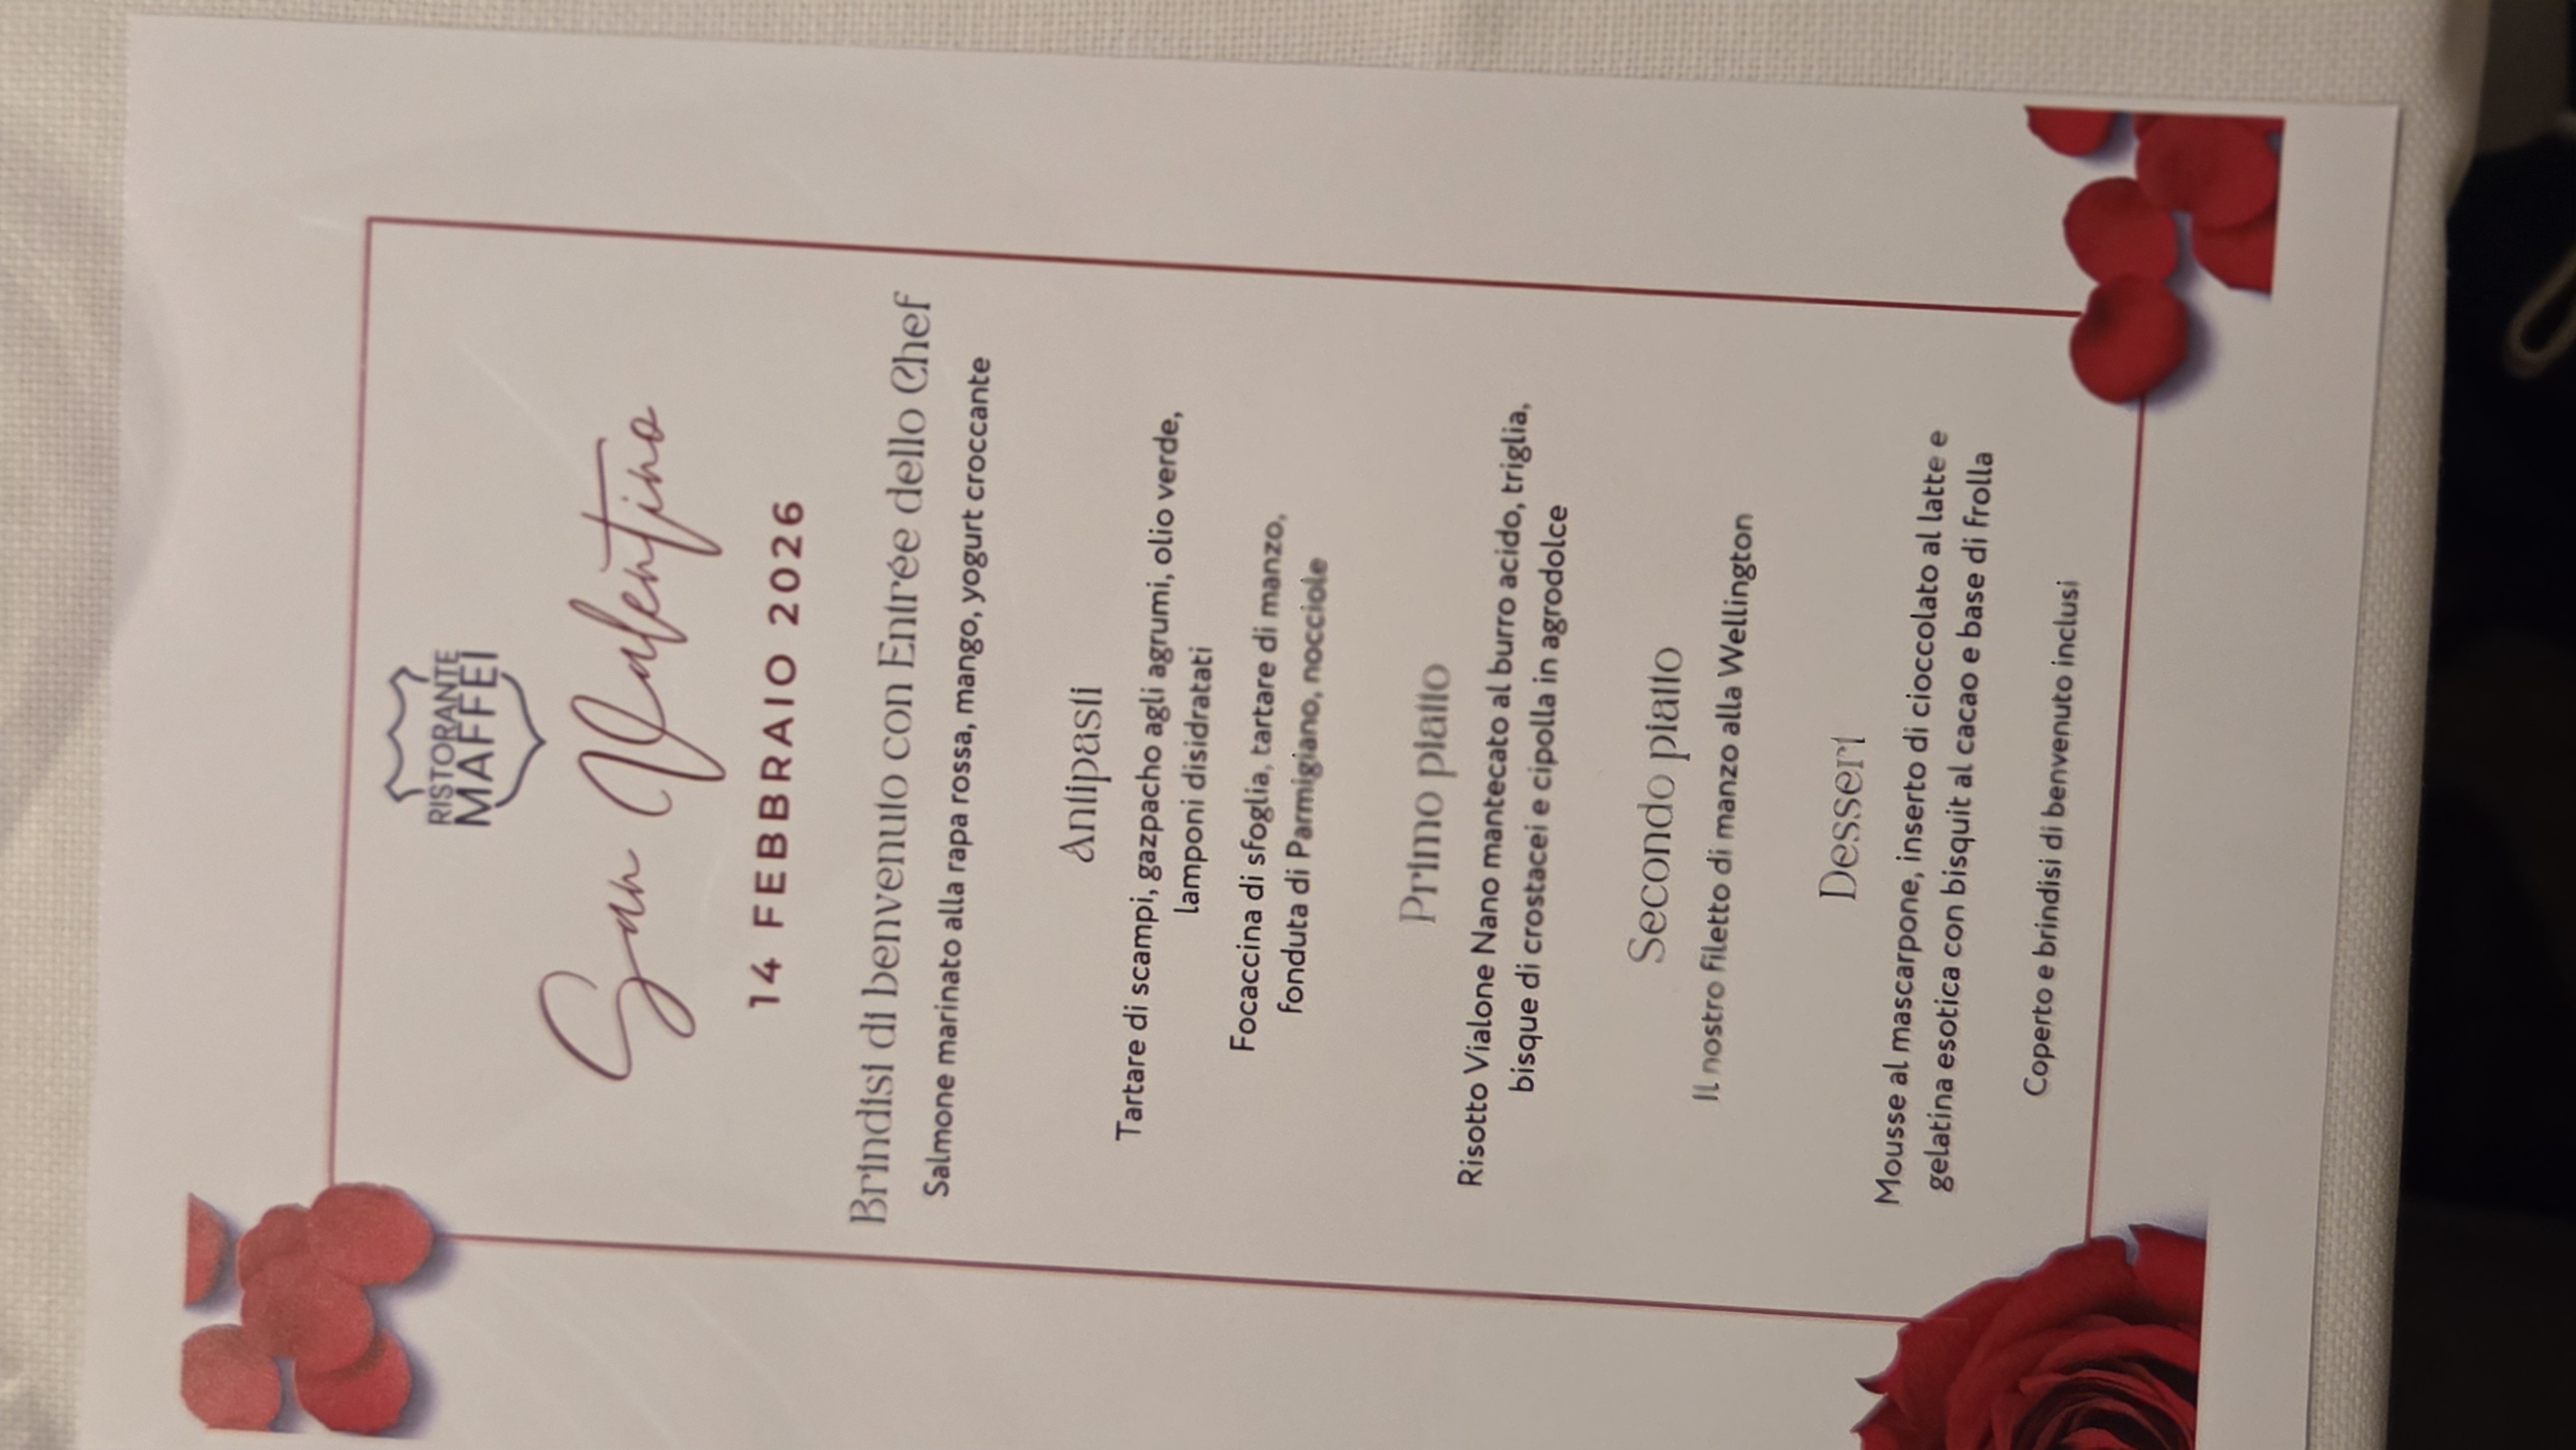 RISTORANTE
MAFFEI
San Valentino
14 FEBBRAIO 2026
Brindisi di benvenuto con Entrée dello Chef
Salmone marinato alla rapa rossa, mango, yogurt croccante
Antipasti
Tartare di scampi, gazpacho agli agrumi, olio verde,
lamponi disidratati
Focaccina di sfoglia, tartare di manzo,
fonduta di Parmigiano, nocciole
Primo piatto
Risotto Vialone Nano mantecato al burro acido, triglia,
bisque di crostacei e cipolla in agrodolce
Secondo piatto
Il nostro filetto di manzo alla Wellington
Dessert
Mousse al mascarpone, inserto di cioccolato al latte e
gelatina esotica con bisquit al cacao e base di frolla
Coperto e brindisi di benvenuto inclusi